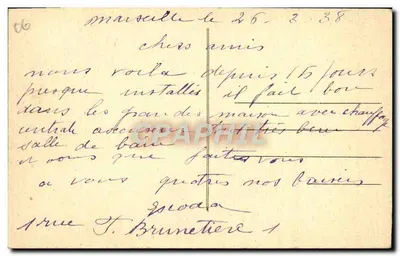 66
marseille le 26. 2. 38
chers amis
nous voila depuis 15 jours
presque installés il fait bon
dans les grandes maison avec chauffage
centrale tres beau
salle de bain
et vous que faites vous
a vous quatres nos baisers
1 rue F. Brunetiere 1